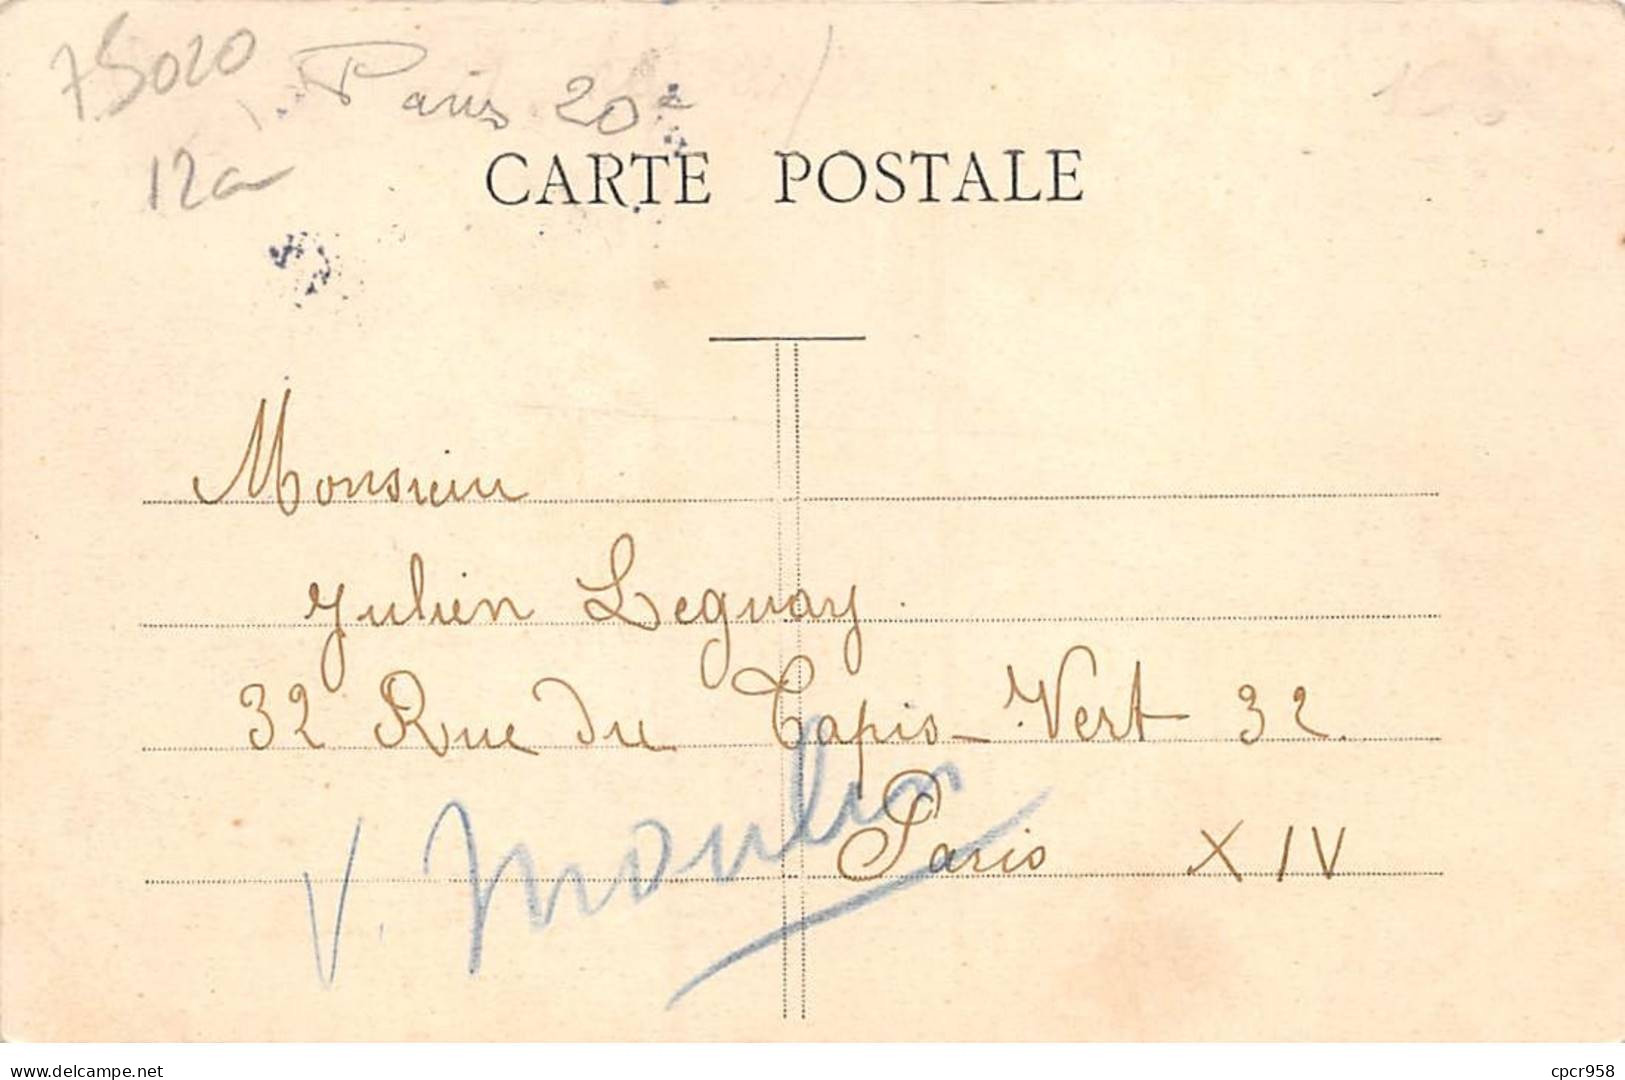 75020
Paris 20e
12a
CARTE POSTALE
Monsieur
Julien Leguay.
32 Rue du Tapis-Vert 32.
Paris XIV
V. Moulin
www.delcampe.net
cpcr958